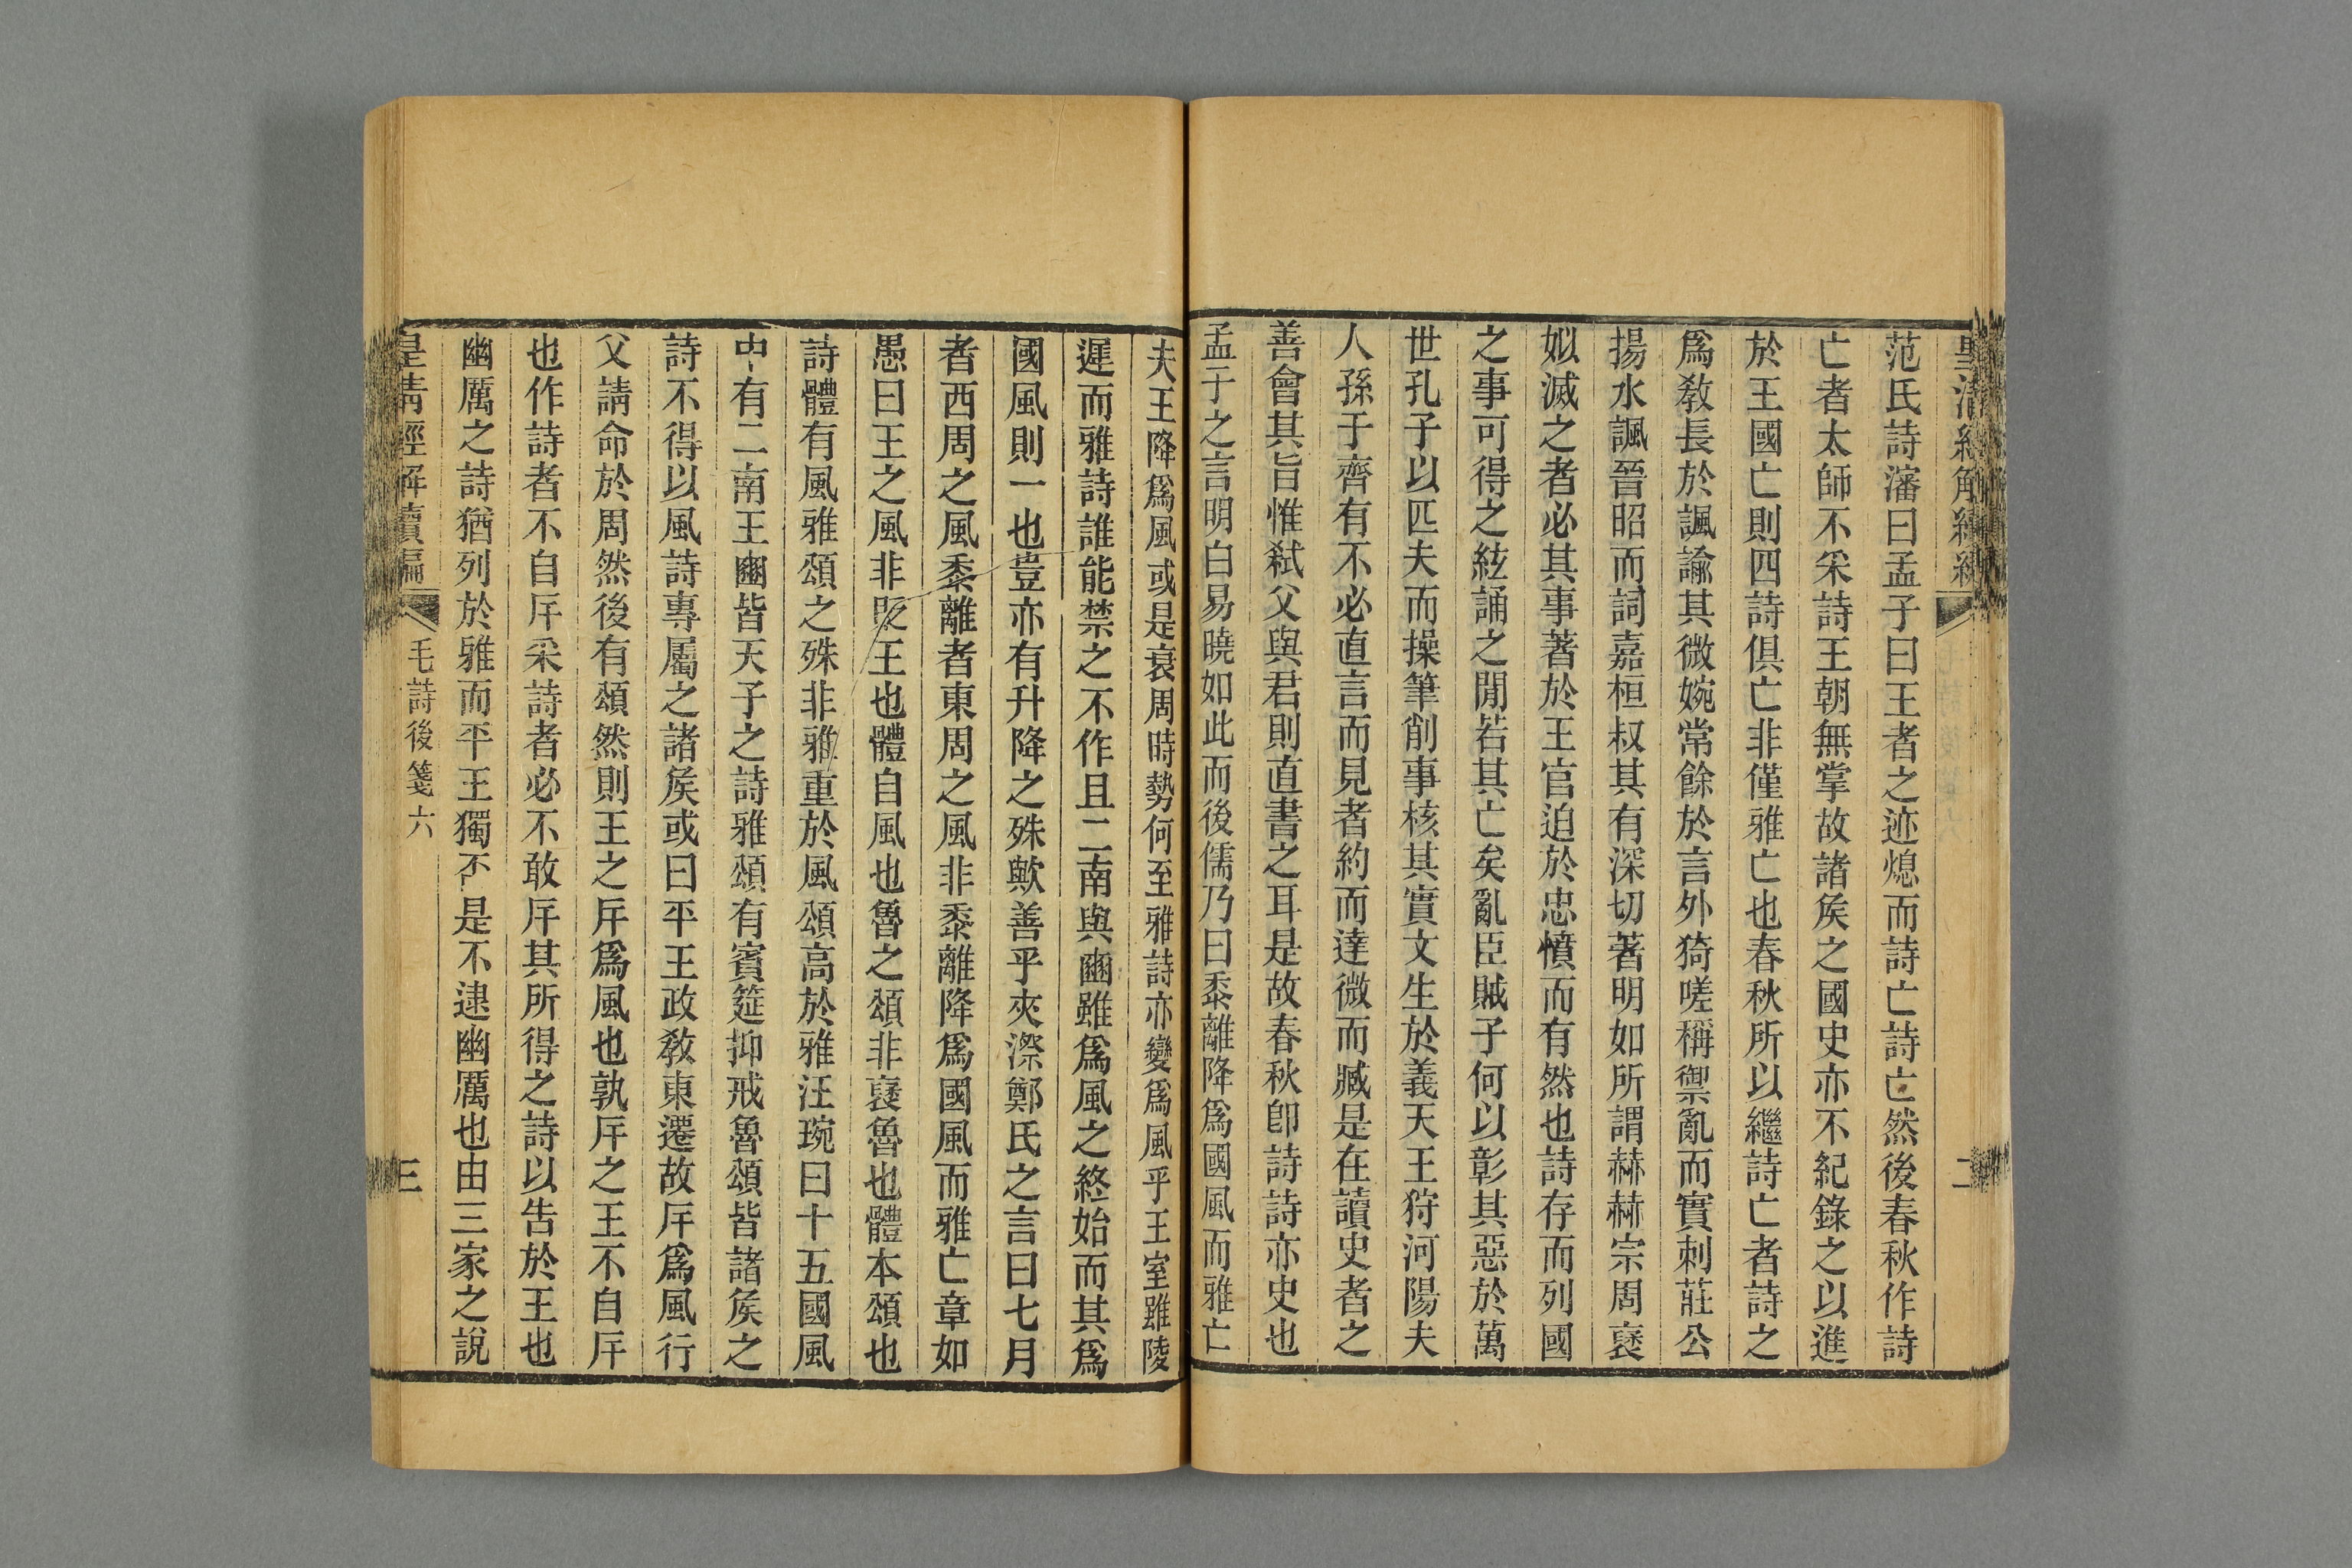 范氏詩瀋曰孟子曰王者之迹熄而詩亡詩亡然後春秋作詩
亡者太師不采詩王朝無掌故諸矦之國史亦不紀錄之以進
於王國亡則四詩俱亡非僅雅亡也春秋所以繼詩亡者詩之
爲敎長於諷諭其微婉常餘於言外猗嗟稱禦亂而實刺莊公
揚水諷晉昭而詞嘉桓叔其有深切著明如所謂赫赫宗周襃
姒滅之者必其事著於王官迫於忠憤而有然也詩存而列國
之事可得之絃誦之閒若其亡矣亂臣賊子何以彰其惡於萬
世孔子以匹夫而操筆削事核其實文生於義天王狩河陽夫
人孫于齊有不必直言而見者約而達微而臧是在讀史者之
善會其旨惟弒父與君則直書之耳是故春秋卽詩詩亦史也
孟子之言明白易曉如此而後儒乃曰黍離降爲國風而雅亡
夫王降爲風或是衰周時勢何至雅詩亦變爲風乎王室雖陵
遲而雅詩誰能禁之不作且二南與豳雖爲風之終始而其爲
國風則一也豈亦有升降之殊歟善乎夾漈鄭氏之言曰七月
者西周之風黍離者東周之風非黍離降爲國風而雅亡章如
愚曰王之風非貶王也體自風也魯之頌非襃魯也體本頌也
詩體有風雅頌之殊非雅重於風頌高於雅汪琬曰十五國風
中有二南王豳皆天子之詩雅頌有賓筵抑戒魯頌皆諸矦之
詩不得以風詩專屬之諸矦或曰平王政敎東遷故㡿爲風行
父請命於周然後有頌然則王之㡿爲風也孰㡿之王不自㡿
也作詩者不自㡿采詩者必不敢㡿其所得之詩以告於王也
幽厲之詩猶列於雅而平王獨否是不逮幽厲也由三家之說
皇清經解續編
毛詩後箋六
三